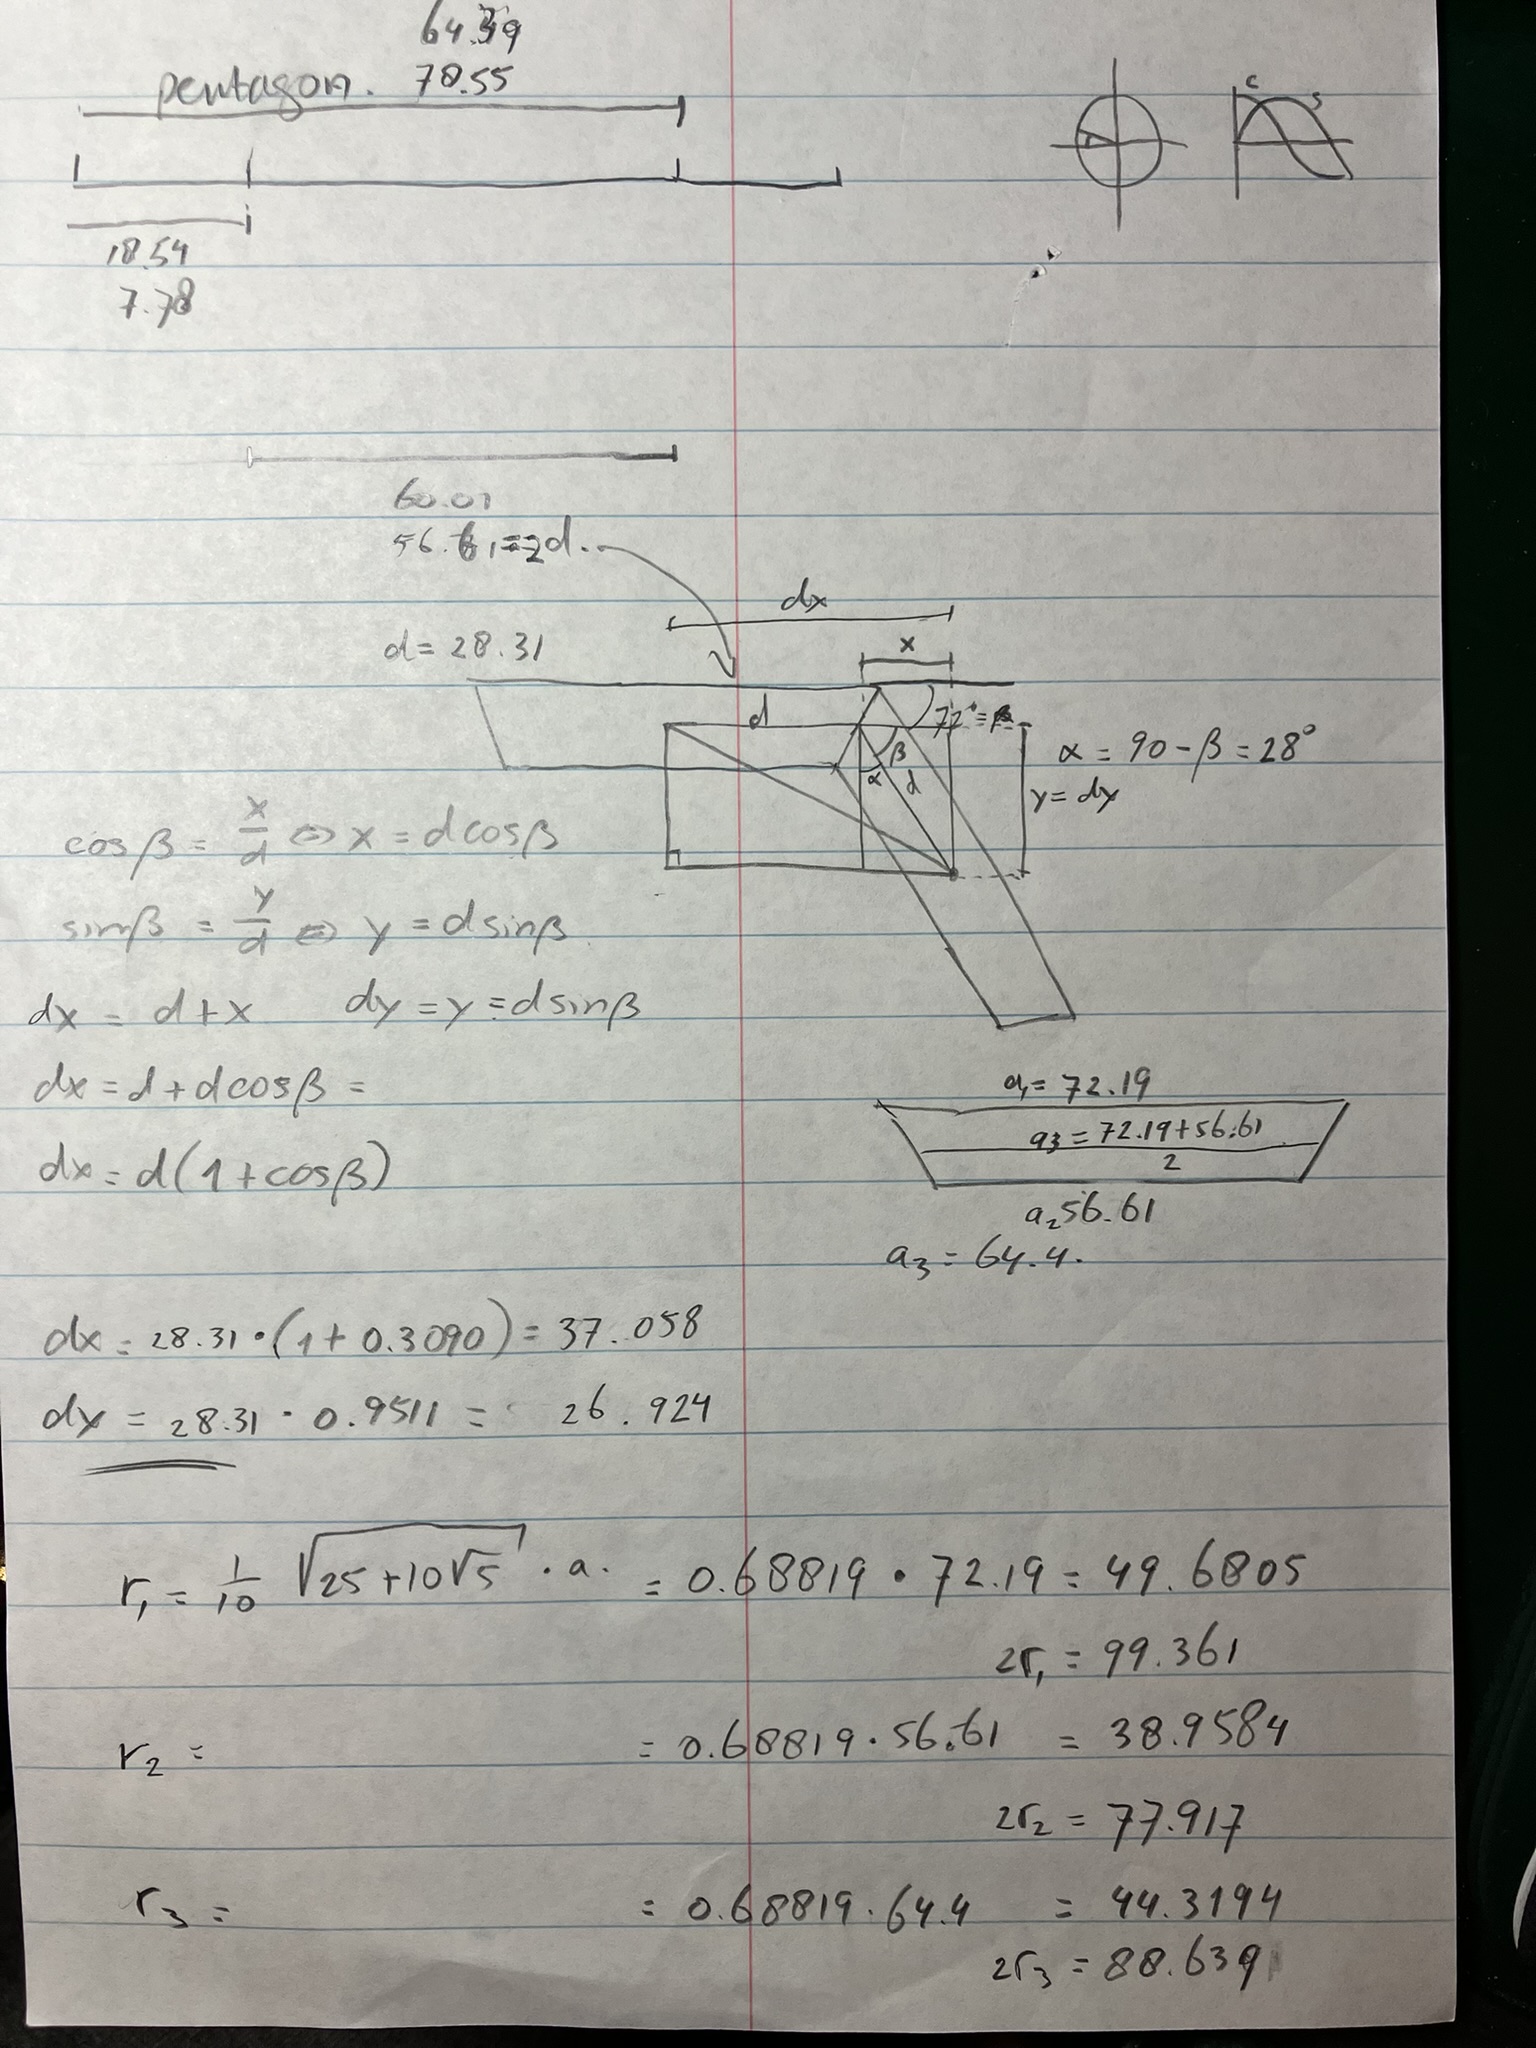 64.39
pentagon. 78.55
c s
18.54
7.78
60.01
56.61=2d.
dx
d = 28.31
x
d
72° = β
β
α d
α = 90 - β = 28°
y = dy
cosβ = x/d ⇔ x = dcosβ
sinβ = y/d ⇔ y = dsinβ
dx = d+x dy = y = dsinβ
dx = d + dcosβ =
a₁ = 72.19
a₃ = 72.19+56.61 / 2
dx = d(1+cosβ)
a₂ 56.61
a₃ = 64.4.
dx = 28.31 · (1+0.3090) = 37.058
dy = 28.31 · 0.9511 = 26.924
r₁ = 1/10 √(25+10√5) · a. = 0.68819 · 72.19 = 49.6805
2r₁ = 99.361
r₂ = = 0.68819 · 56.61 = 38.9584
2r₂ = 77.917
r₃ = = 0.68819 · 64.4 = 44.3194
2r₃ = 88.639